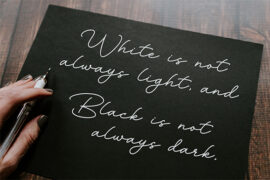 White is not
always light, and
Black is not
always dark.